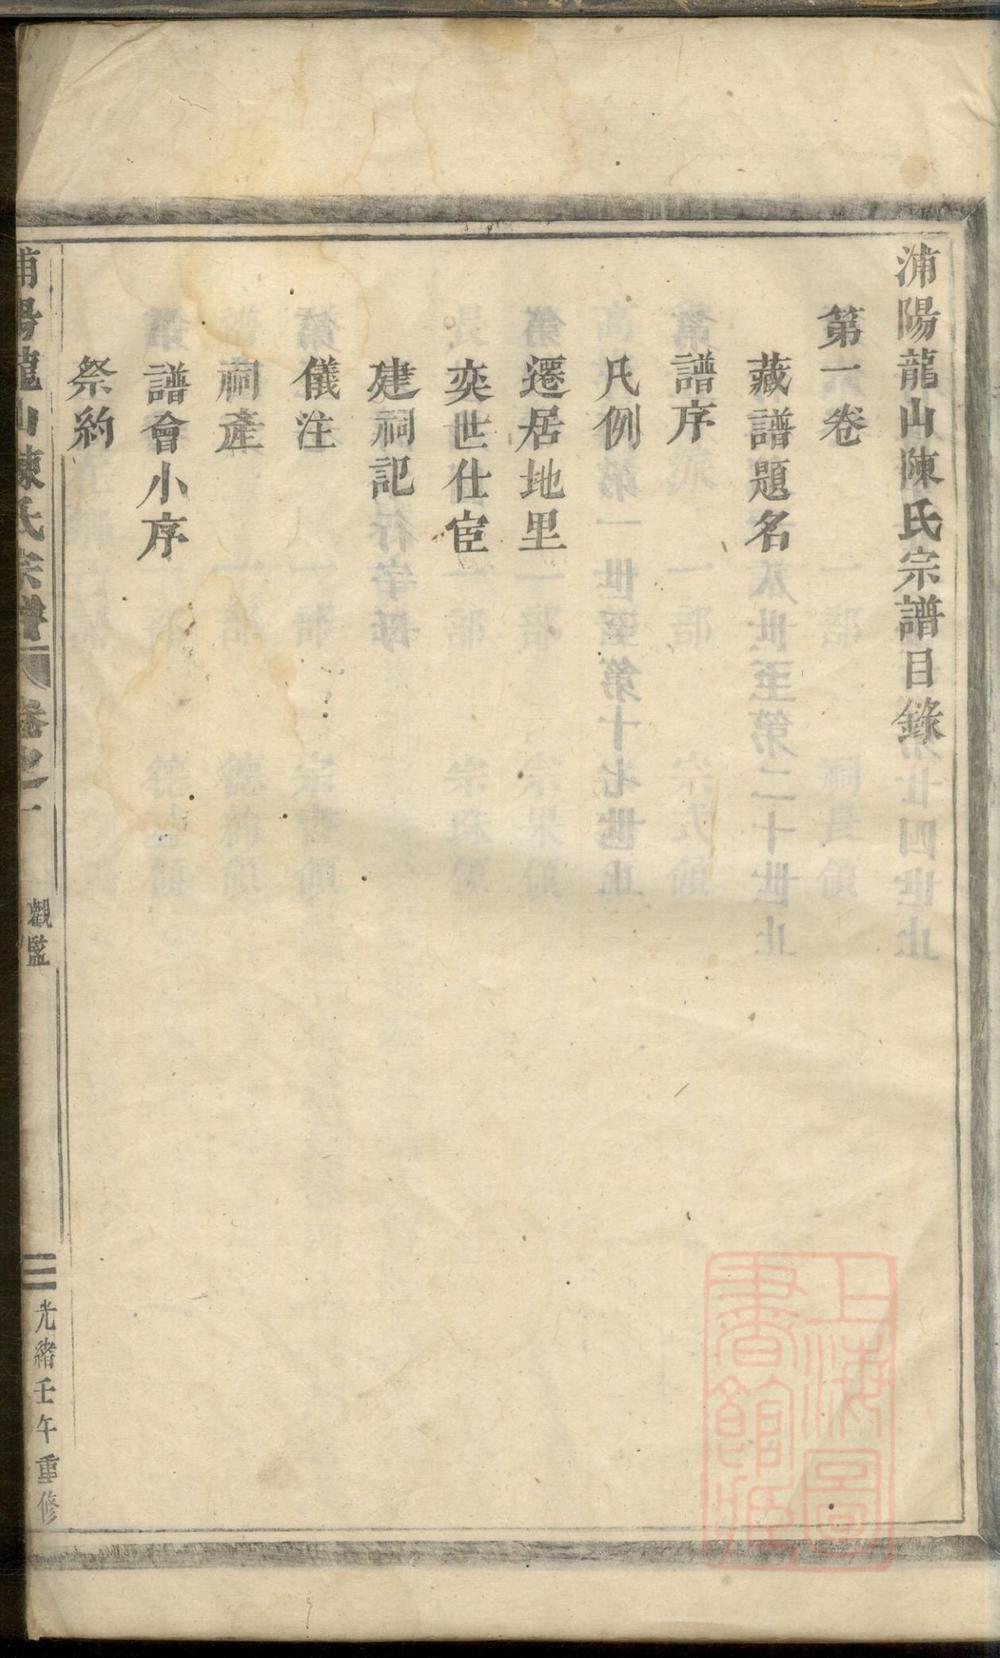 浦陽龍山陳氏宗譜目錄
第一卷
藏譜題名
譜序
凡例
遷居地里
奕世仕宦
建祠記
儀注
祠產
譜會小序
祭約
浦陽龍山陳氏宗譜 卷之一 觀監 二 光緒壬午重修
上海圖書館藏